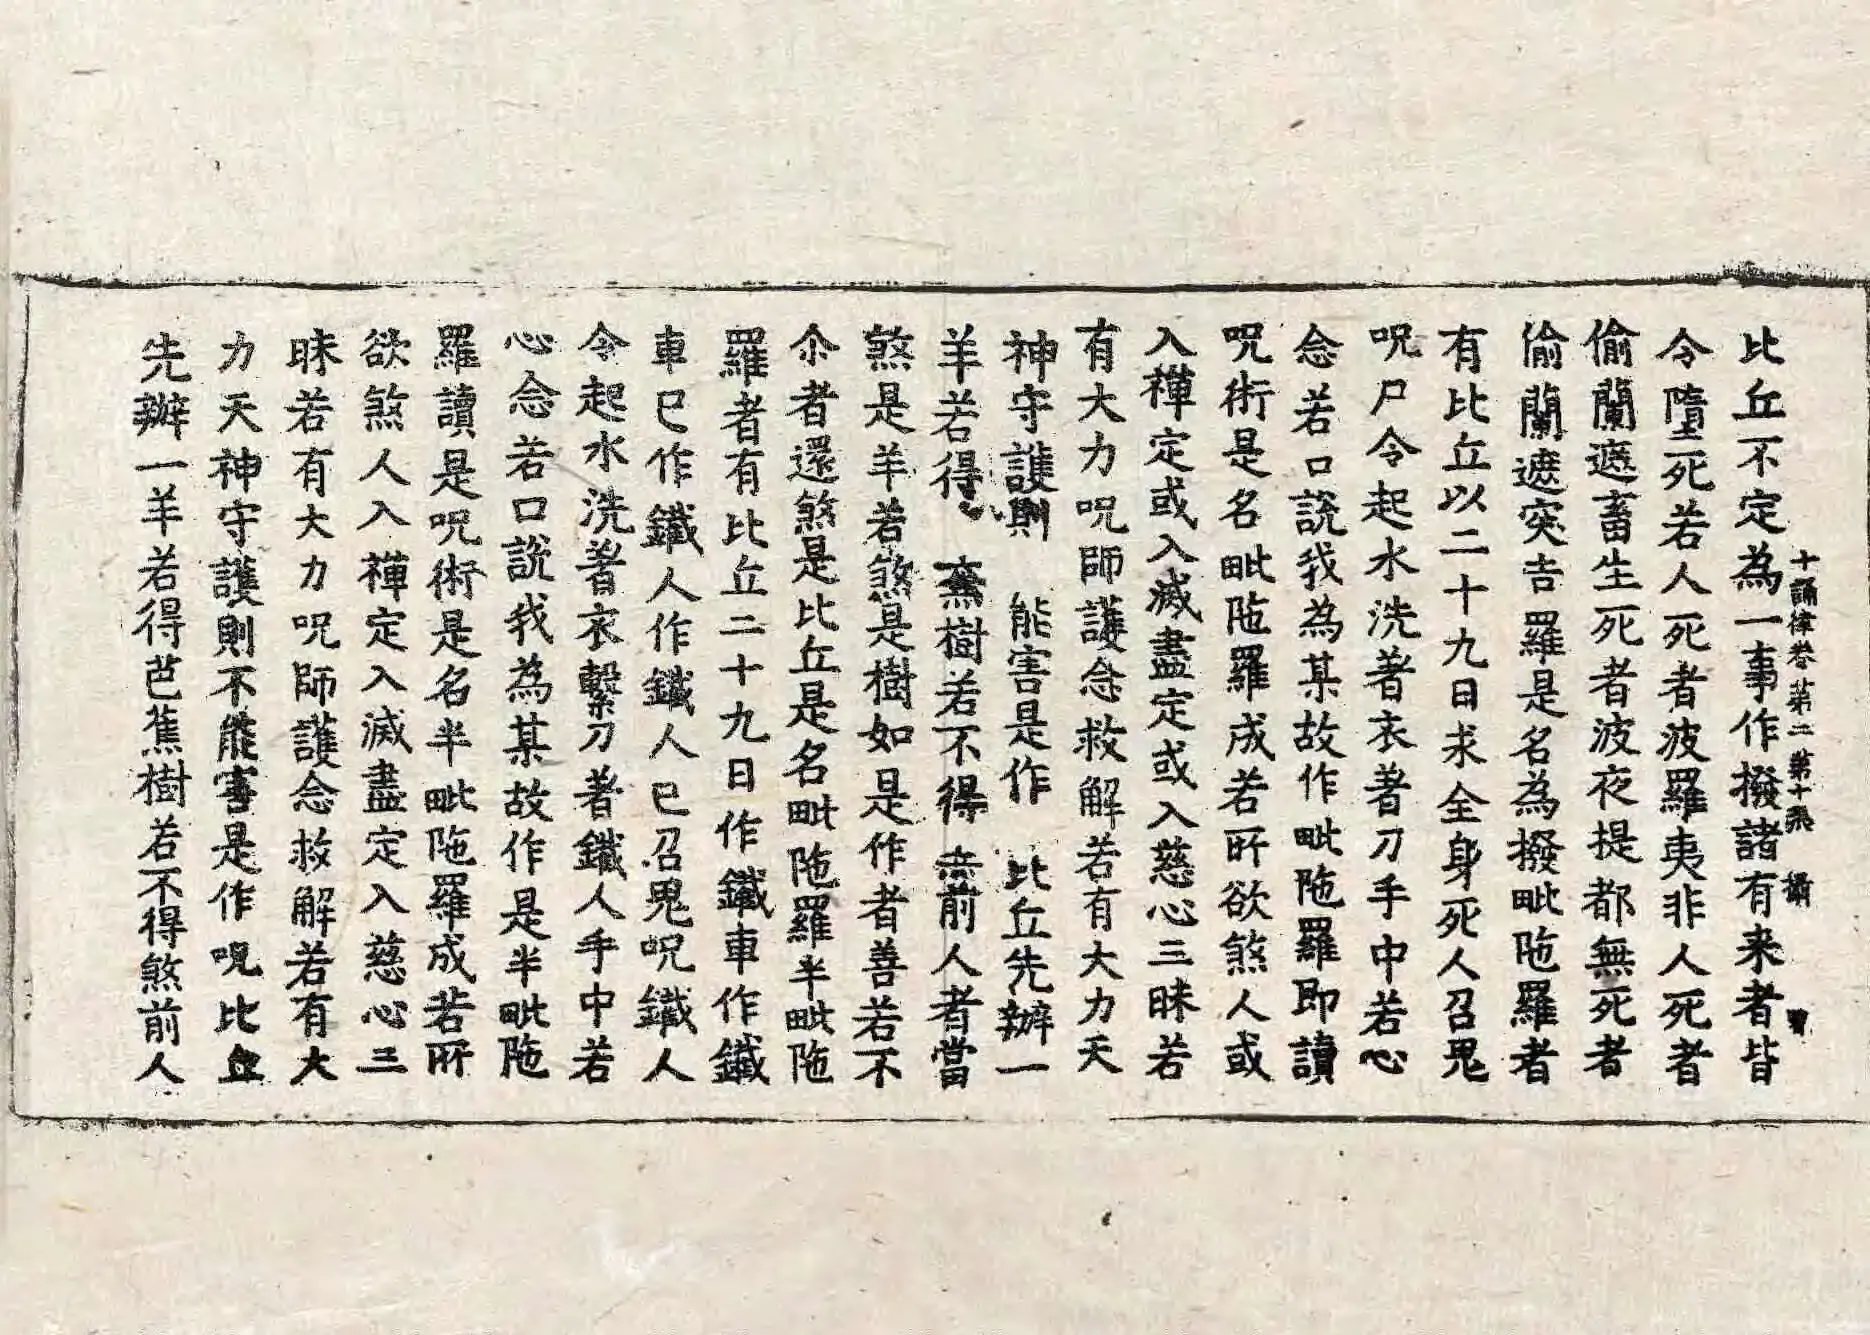 比丘不定為一事作撥諸有来者皆
十誦律卷第二 第十張
令墮死若人死者波羅夷非人死者
偷蘭遮畜生死者波夜提都無死者
偷蘭遮突吉羅是名為撥毗陁羅者
有比丘以二十九日求全身死人召鬼
呪尸令起水洗著衣著刀手中若心
念若口說我為某故作毗陁羅即讀
呪術是名毗陁羅成若所欲煞人或
入禪定或入滅盡定或入慈心三昧若
有大力呪師護念救解若有大力天
神守護則 能害是作 比丘先辦一
羊若得 蕉樹若不得 前人者當
煞是羊若煞是樹如是作者善若不
尒者還煞是比丘是名毗陁羅半毗陁
羅者有比丘二十九日作鐵車作鐵
車已作鐵人作鐵人已召鬼呪鐵人
令起水洗著衣繫刀著鐵人手中若
心念若口說我為某故作是半毗陁
羅讀是呪術是名半毗陁羅成若所
欲煞人入禪定入滅盡定入慈心三
昧若有大力呪師護念救解若有大
力天神守護則不能害是作呪比丘
先辦一羊若得芭蕉樹若不得煞前人